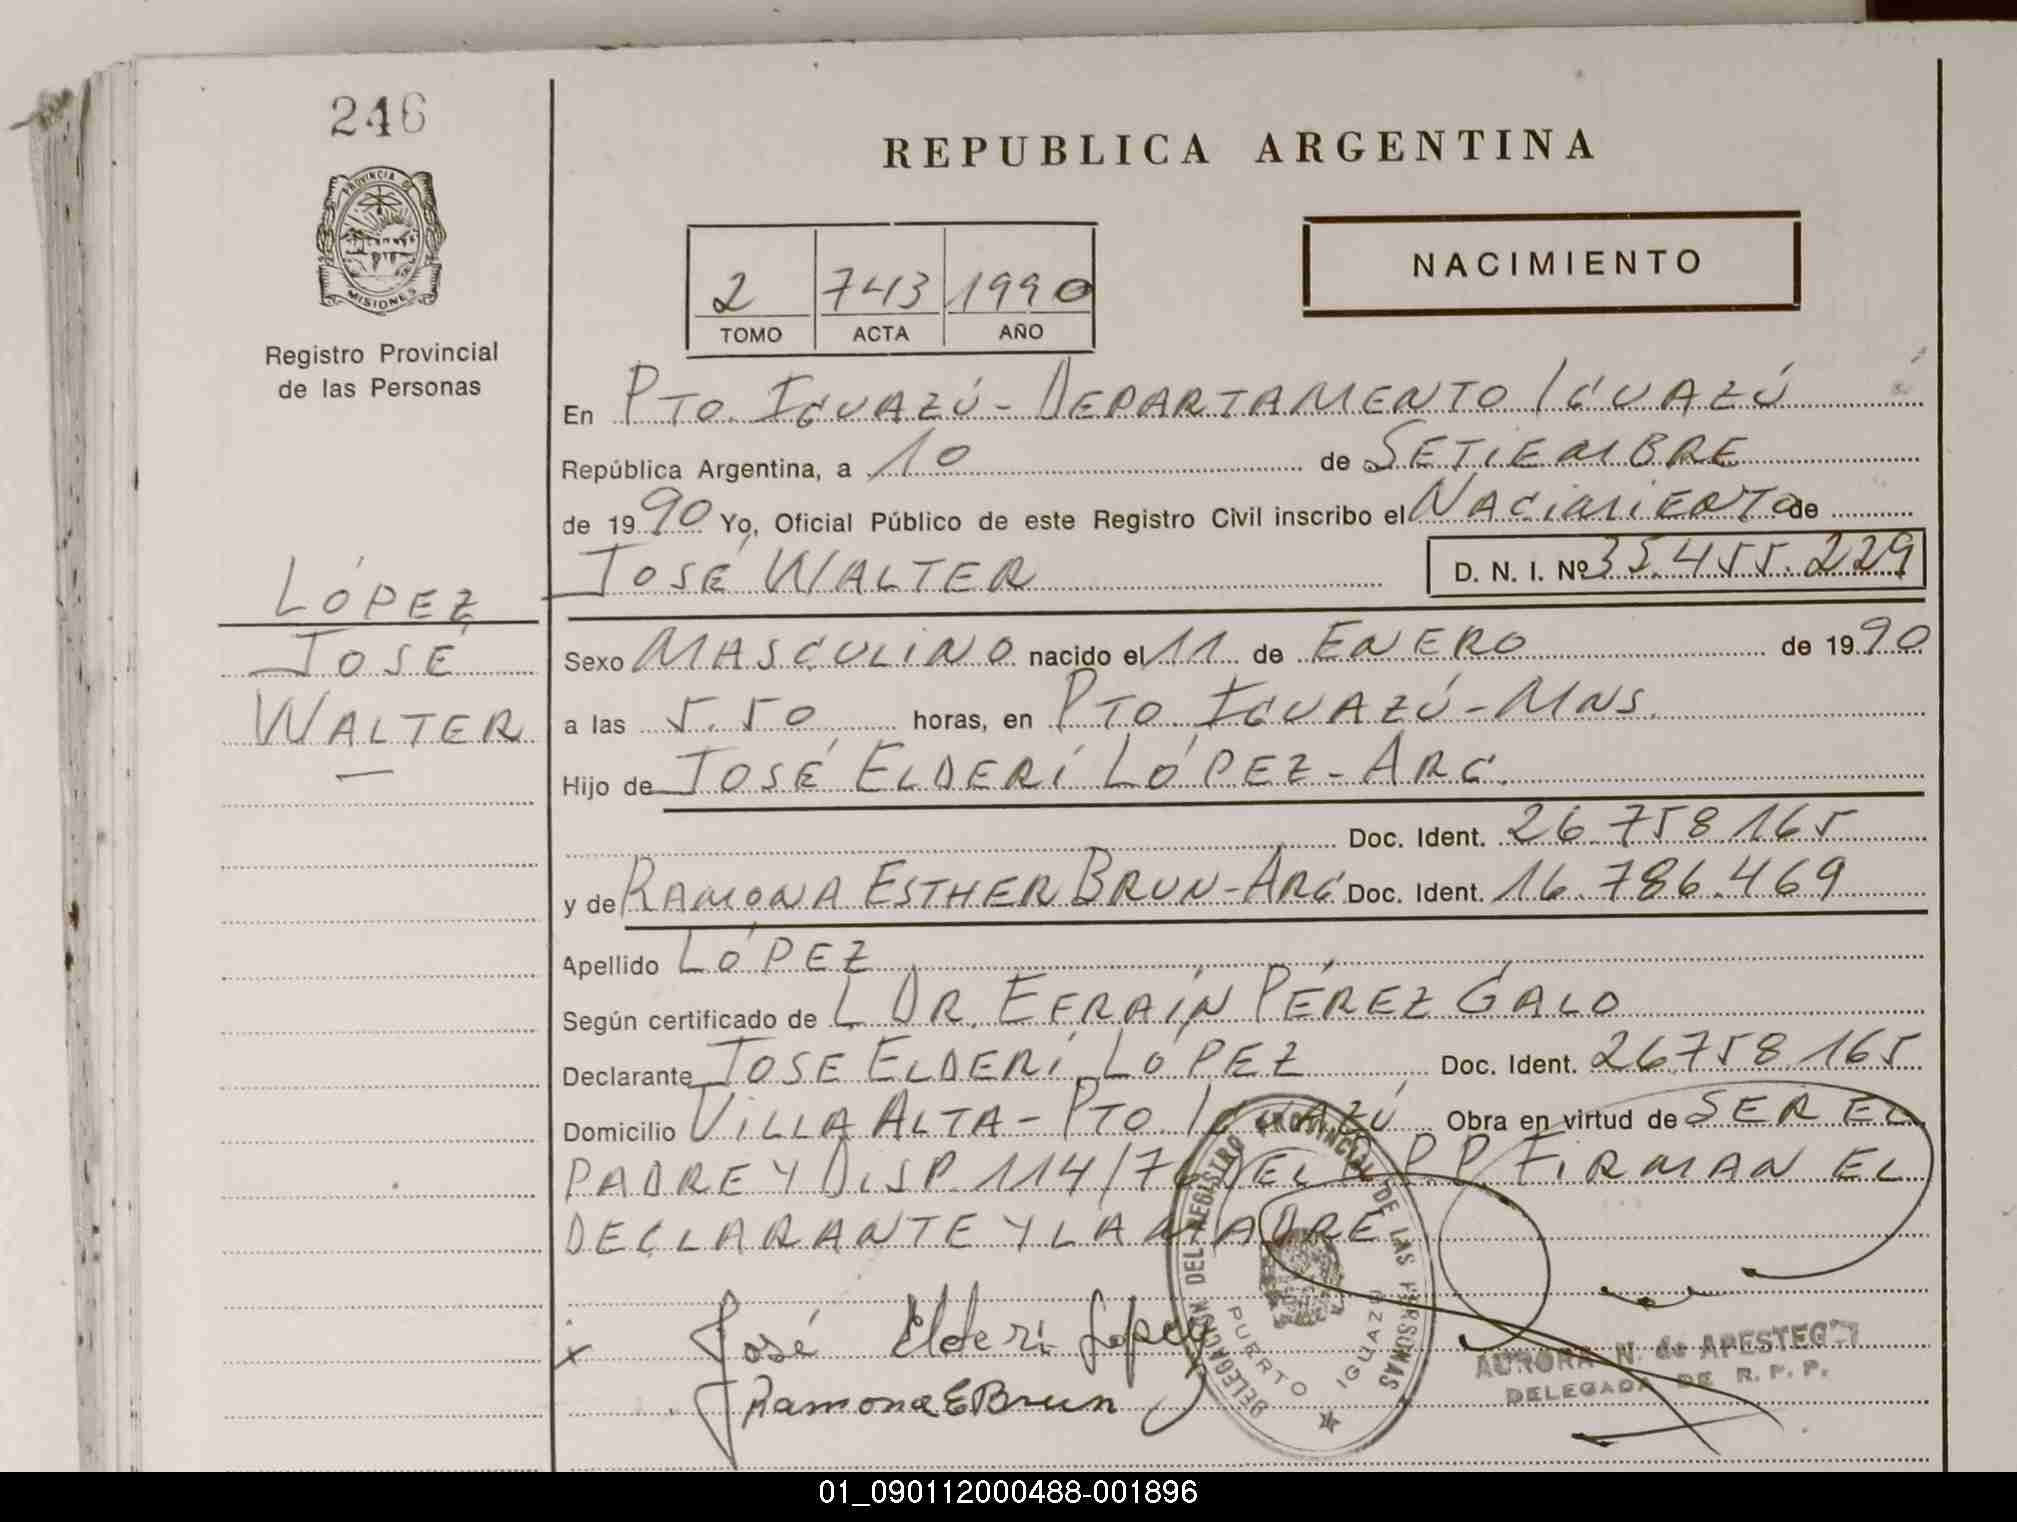 246
REPUBLICA ARGENTINA
PROVINCIA DE
MISIONES
NACIMIENTO
2 743 1990
TOMO ACTA AÑO
Registro Provincial
de las Personas
En PTO. IGUAZÚ - DEPARTAMENTO IGUAZÚ
República Argentina, a 10 de SETIEMBRE
de 1990 Yo, Oficial Público de este Registro Civil inscribo el NACIMIENTO de
JOSÉ WALTER D. N. I. Nº 35.455.229
LÓPEZ
JOSÉ
WALTER
Sexo MASCULINO nacido el 11 de ENERO de 1990
a las 5.50 horas, en PTO. IGUAZÚ - MNS.
Hijo de JOSÉ ELDERÍ LÓPEZ - ARG.
Doc. Ident. 26.758.165
y de RAMONA ESTHER BRUN - ARG. Doc. Ident. 16.786.469
Apellido LÓPEZ
Según certificado de L DR. EFRAÍN PÉREZ GALO
Declarante JOSE ELDERÍ LÓPEZ Doc. Ident. 26.758.165
Domicilio VILLA ALTA - PTO. IGUAZÚ Obra en virtud de SER EL
PADRE Y DISP. 114/76 DEL R.P.P. FIRMAN EL
DECLARANTE Y LA MADRE
José Elderi Lopez
Ramona E Brun
DELEGACION DEL REGISTRO PROVINCIAL DE LAS PERSONAS
PUERTO IGUAZU
AURORA N. de APESTEGUI
DELEGADA DE R. P. P.
01_090112000488-001896